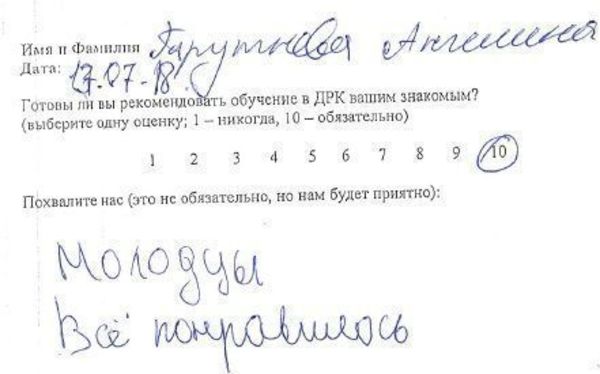 Имя и Фамилия Гарутнова Ангелина
Дата: 17.07.18.
Готовы ли вы рекомендовать обучение в ДРК вашим знакомым?
(выберите одну оценку; 1 – никогда, 10 – обязательно)
1 2 3 4 5 6 7 8 9 10
Похвалите нас (это не обязательно, но нам будет приятно):
Молодцы
Всё понравилось